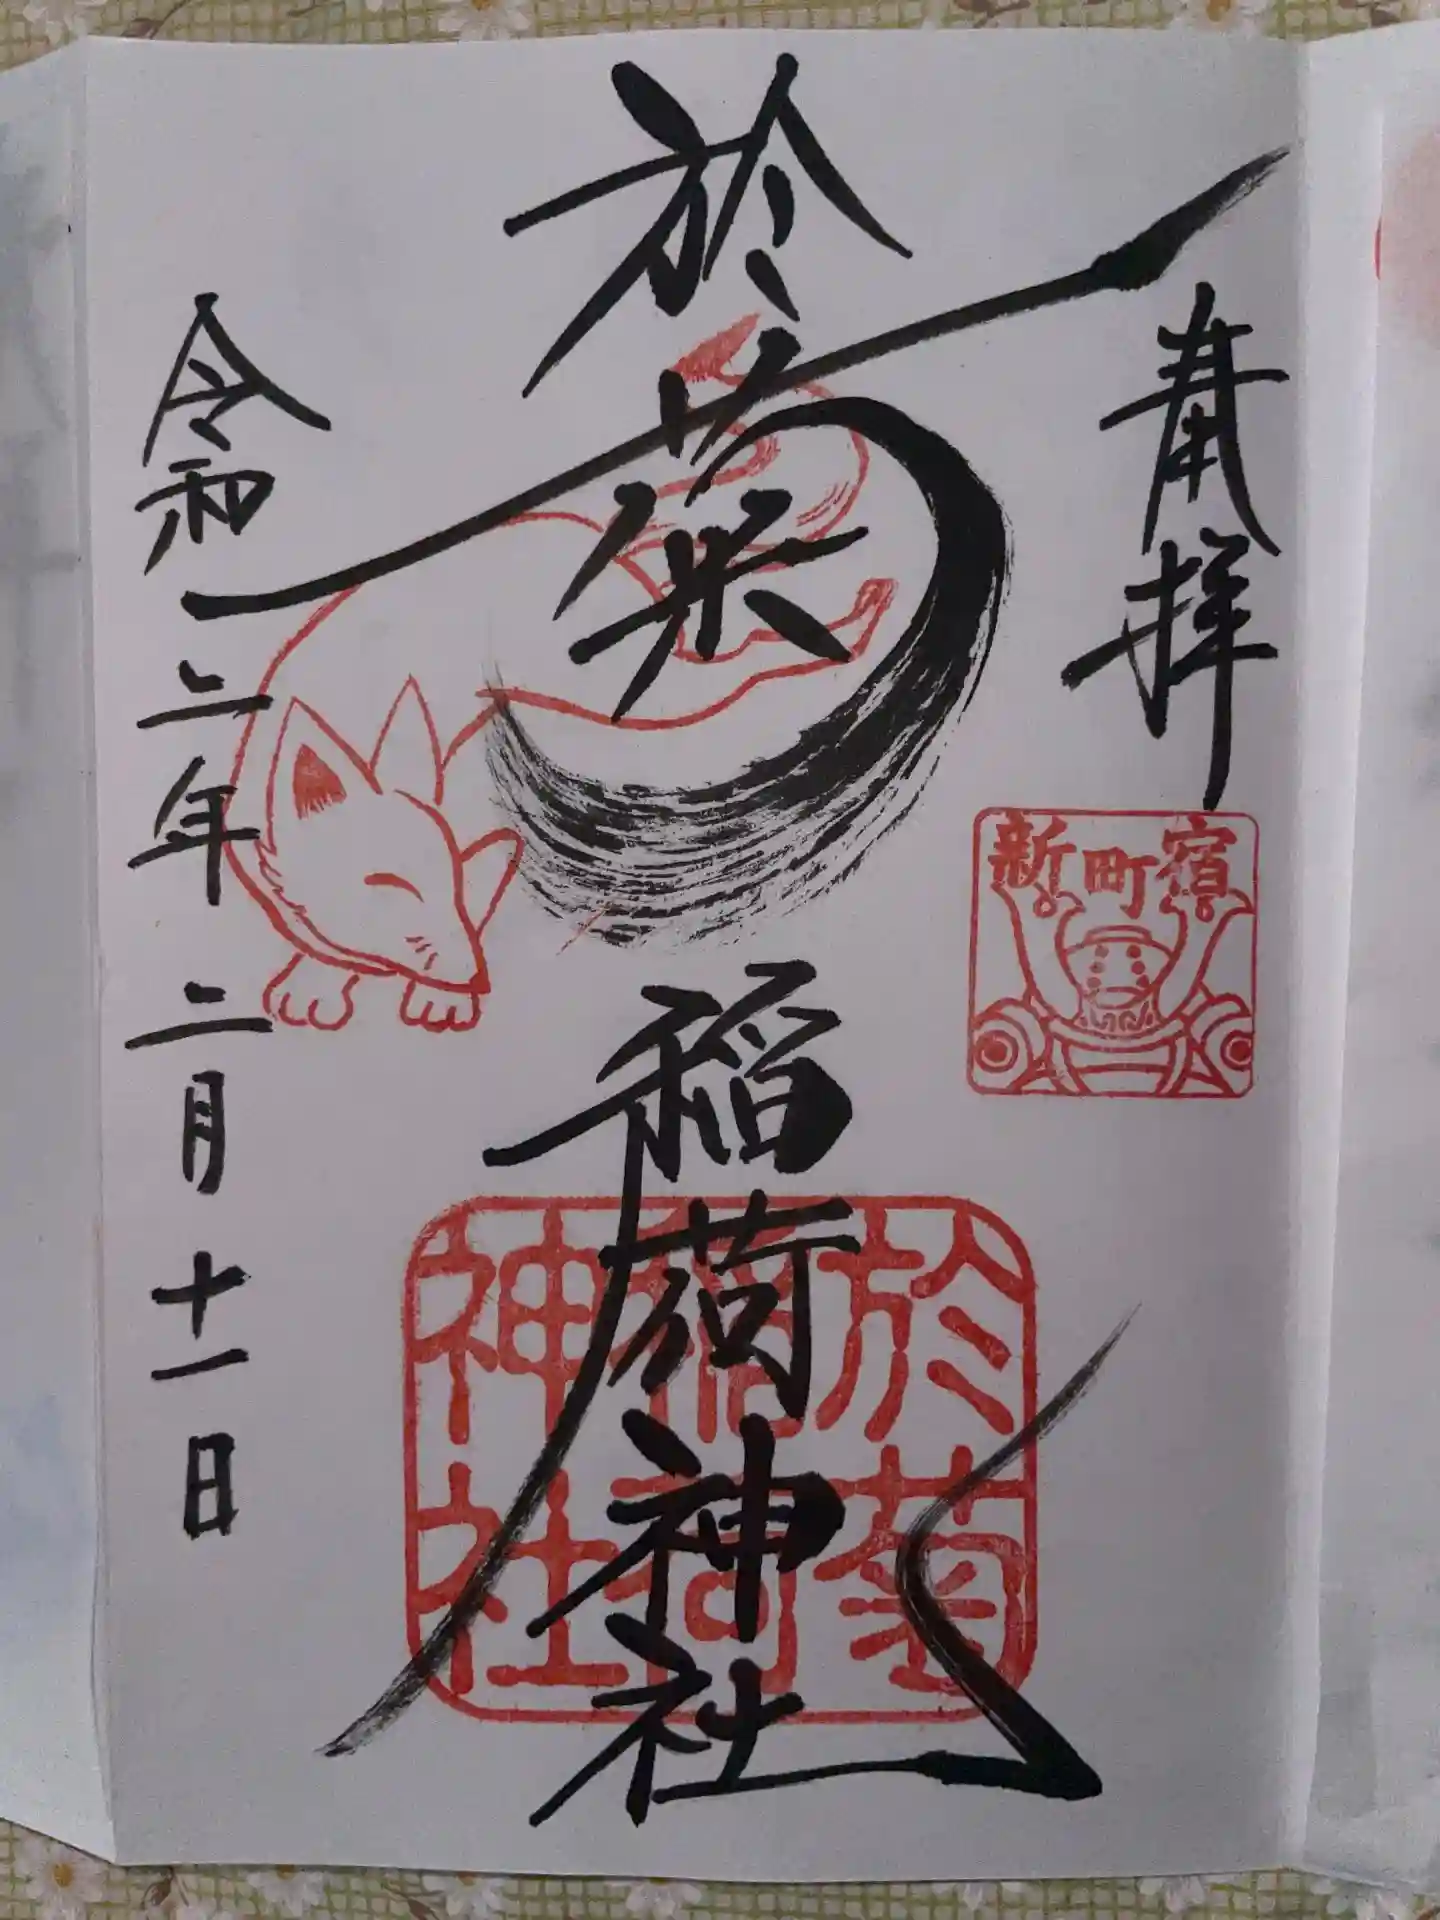 奉拝
新町宿
於菊稲荷神社
於菊
稲荷
神社
令和二年二月十一日